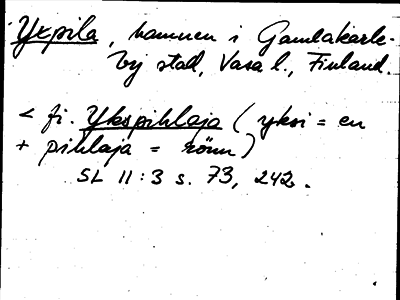 Yxpila, hamnen i Gamlakarle-
by stad, Vasa l., Finland.
< fi. Ykspihlaja (yksi = en
+ pihlaja = rönn)
SL 11:3 s. 73, 242.